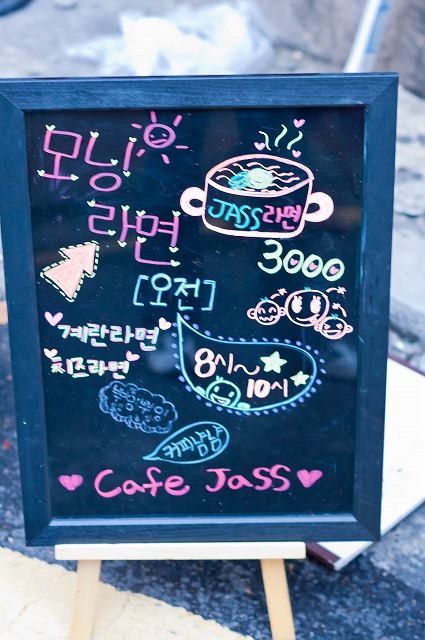 모닝
라면
JASS라면
3000
[오전]
계란라면
치즈라면
8시~
10시
커피냠냠
Cafe Jass